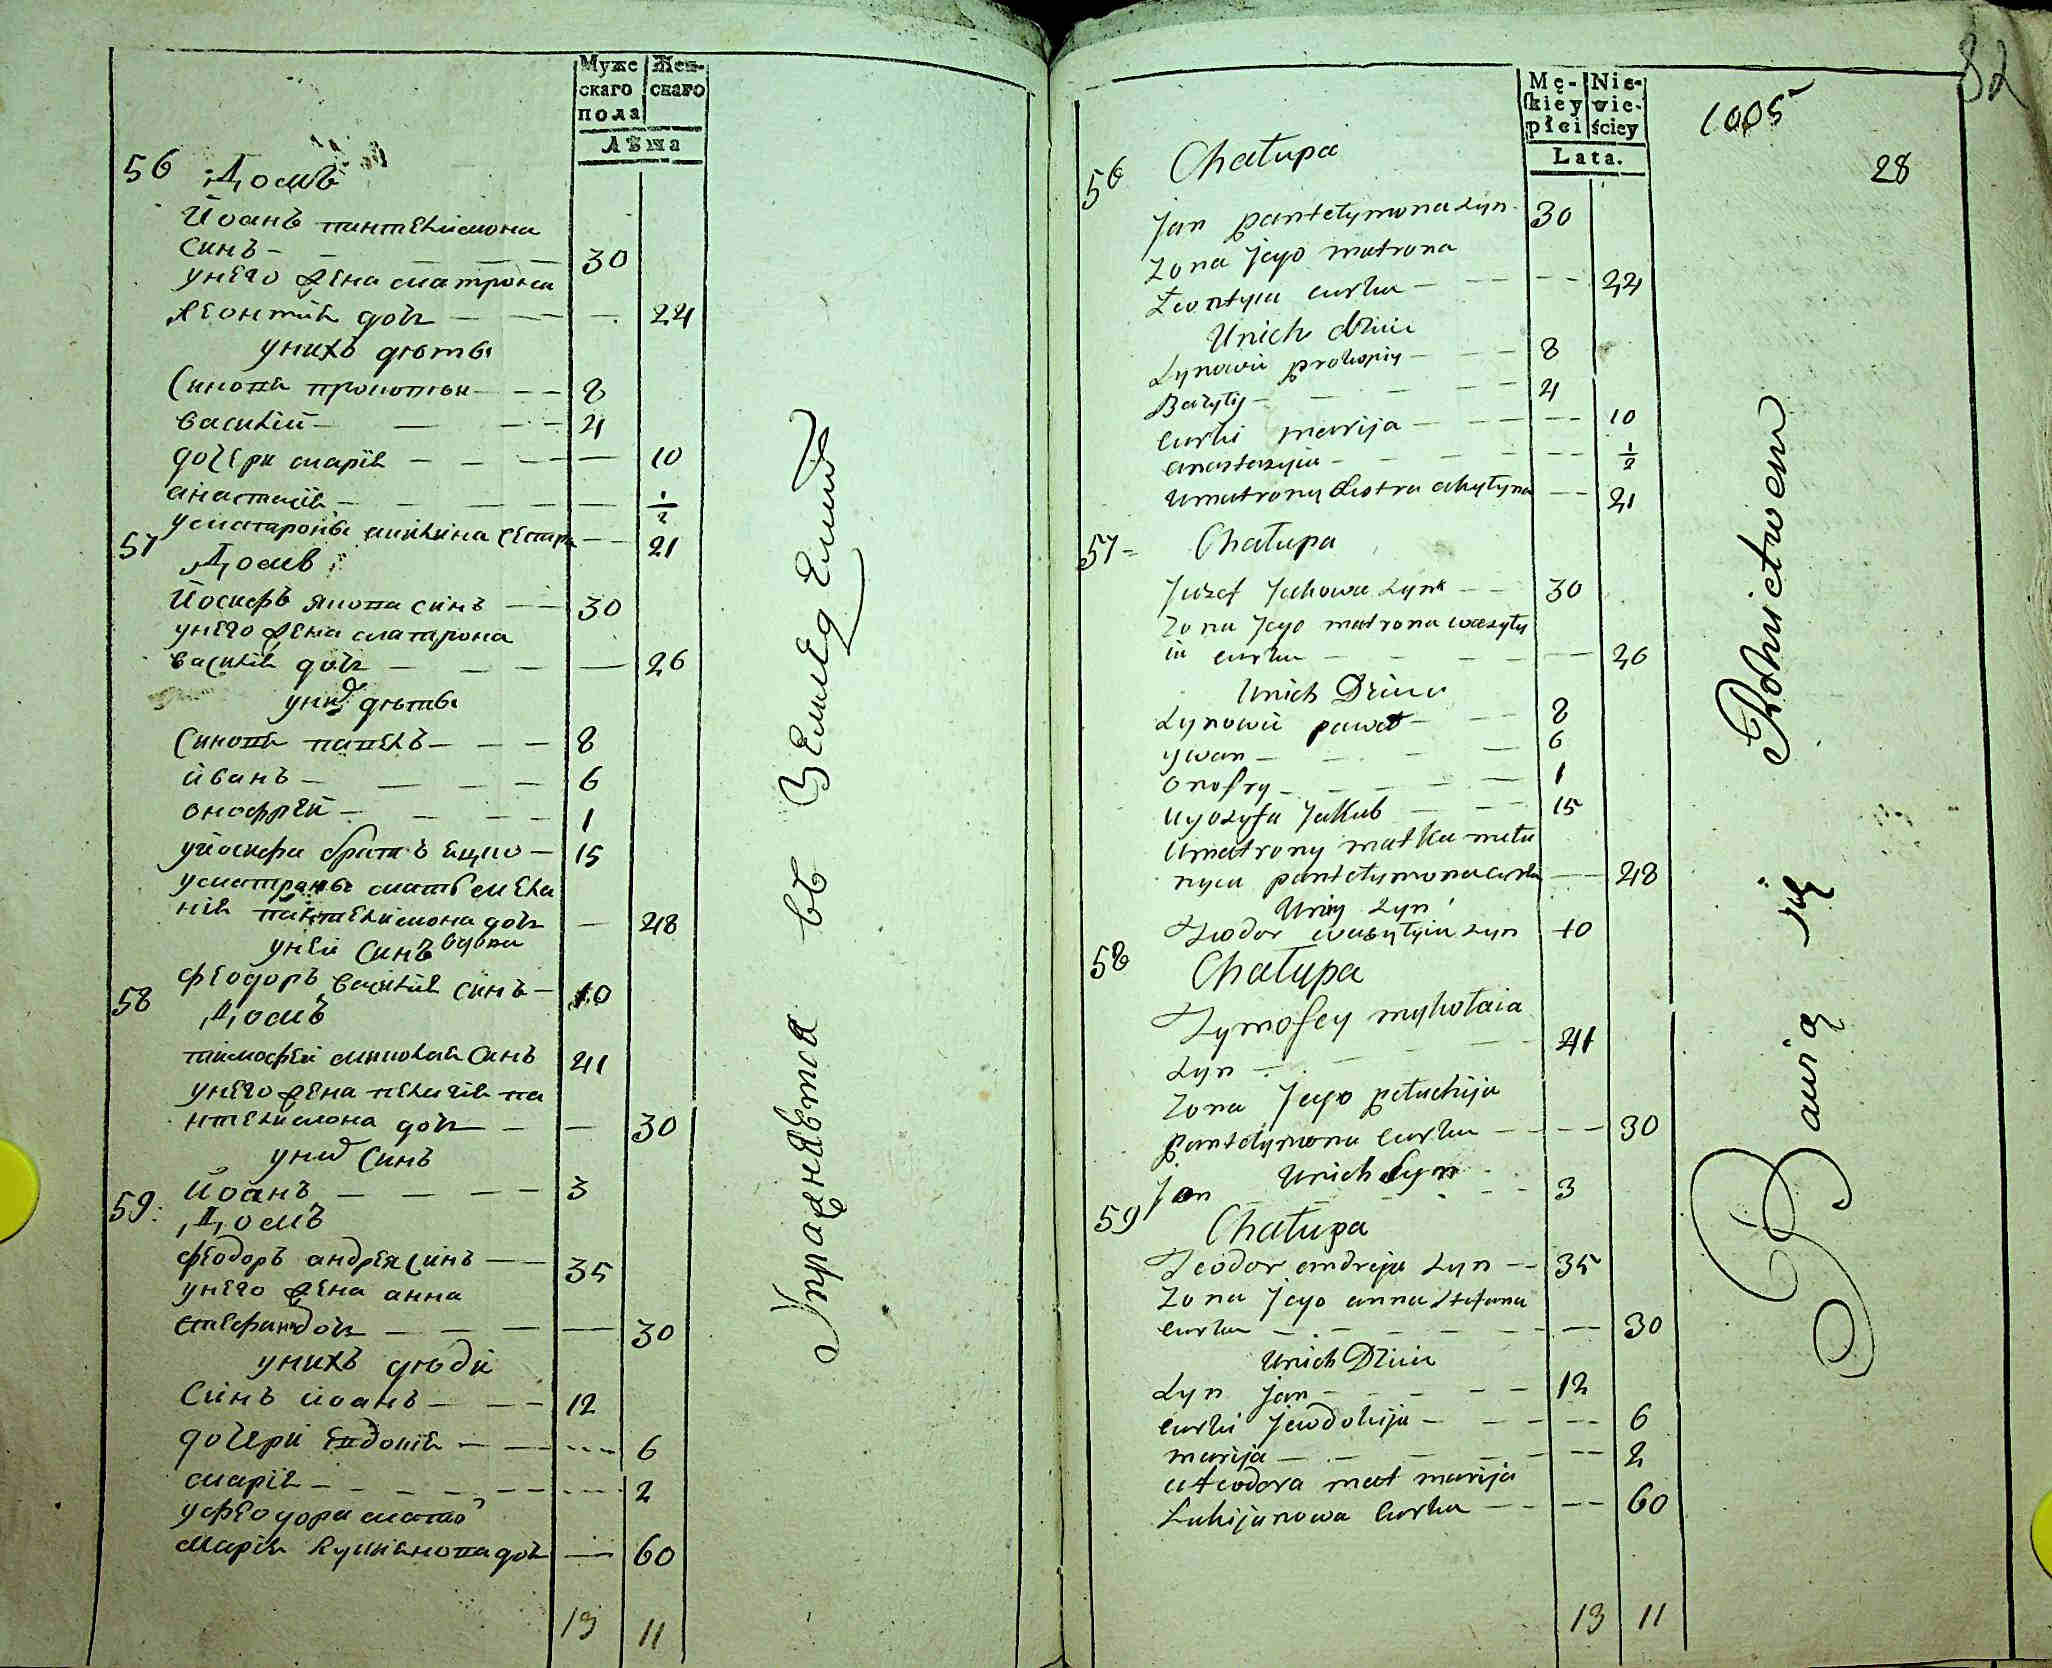 Муже
скаго
пола
Жен-
скаго
Лѣта
56 Домъ
Йоанъ пантелимона
синъ - 30
унего жена матрона
леонтія дочь - 24
унихъ дѣты
Синовя прокопій - 8
василій - 4
дочери марія - 10
анастасія - 1/2
у матроны микитина сестра 21
57 Домъ
Йосифъ якова синъ - 30
унего жена матрона
василія дочь - 26
уних дѣты
Синовя павелъ - 8
иванъ - 6
онофрей - 1
у йосифа братъ 15
у матроны мать мела
нія пантелимона дочь - 48
уней синъ
феодоръ василія синъ - 10
58 Домъ
тимофей миколая синъ 41
унего жена пелагія па
нтелимона дочь - 30
уних синъ
Йоанъ - 3
59: Домъ
феодоръ андрея синъ - 35
унего жена анна
стефана дочь - 30
унихъ дѣти
Синъ иоанъ - 12
дочери евдокія - 6
марія - 2
у феодора мать
марія лукиянова дочь - 60
13 11
Упражняются въ Земледелию
Mę-
skiey
płci
Nie-
wie-
ściey
Lata.
1005
82
28
56 Chałupa
Jan pantelymona syn 30
Zona Jego matrona
Leontyia curka - 24
Unich dzieci
Synowie prokopiy - 8
Bazyly - 4
curki marija - 10
anastazyia - 1/2
umatrony siostra akylyna - 21
57 - Chałupa
Juzef Jakowa syn - 30
Zona Jego matrona wasyly
ia curka - 26
Unich Dzieci
Synowie paweł - 8
ywan - 6
onofry - 1
uyozyfa Jakub - 15
Umatrony matka mela
nyia pantelymona curka - 48
Uniey syn
Teodor wasylyia syn 10
58 Chałupa
Tymofey mykołaia
syn - 41
Zona Jego pelachija
pantelymona curka - 30
Unich Syn
Jan - 3
59 Chałupa
Teodor andreja syn - 35
Zona Jego anna stefana
curka - 30
Unich Dzieci
Syn jan - 12
curki Jewdokija - 6
marija - 2
uteodora mat marija
Lukijanowa curka - 60
13 11
Bawią się Rolnictwem